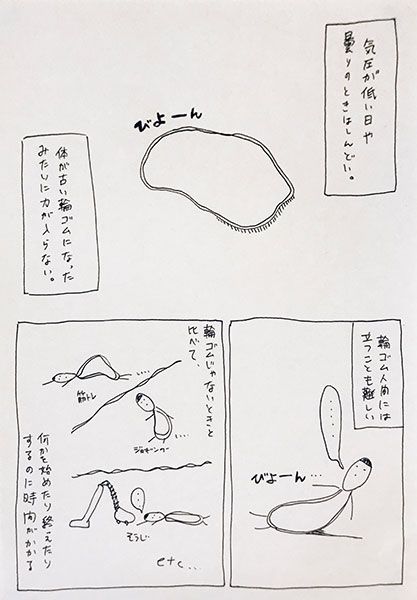 気圧が低い日や
曇りのときはしんどい。
びよーん
体が古い輪ゴムになった
みたいに力が入らない。
輪ゴム人間には
立つことも難しい
びよーん…
輪ゴムじゃないときと
比べて、
筋トレ
ジョギング
そうじ
etc...
何かを始めたり終えたり
するのに時間がかかる